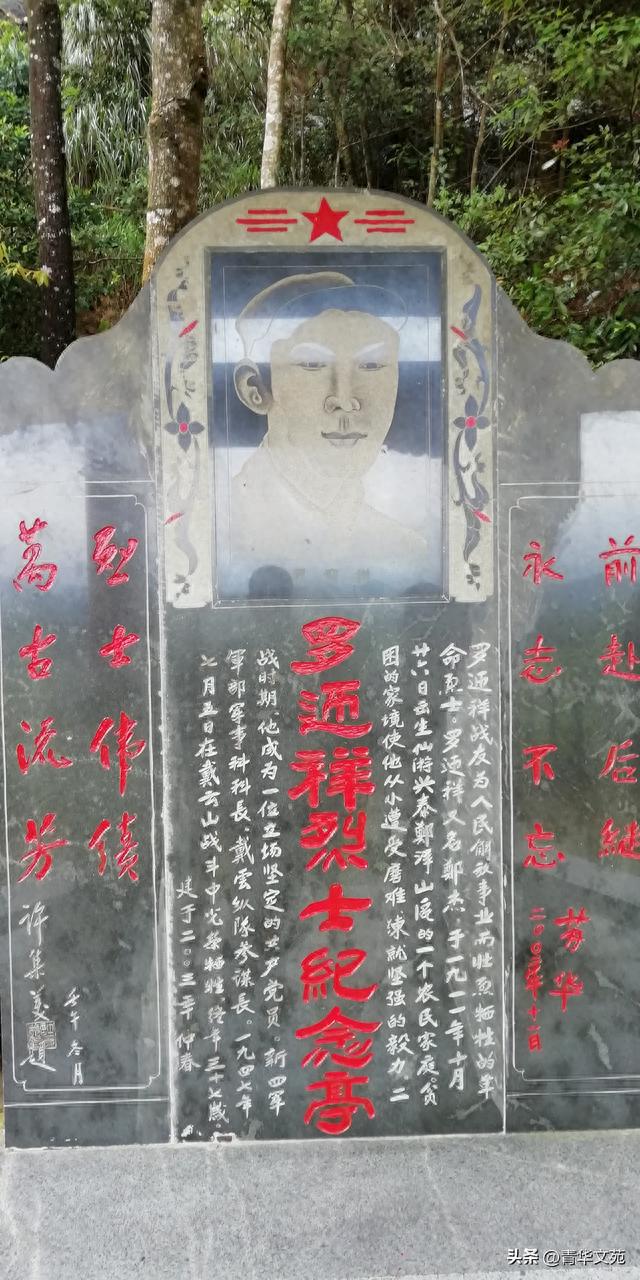 前赴后继
永志不忘
苏华
二〇〇二年十一月
罗迺祥战友为人民解放事业而壮烈牺牲的革
命烈士。罗迺祥又名鄭杰,于一九一一年十月
廿六日出生仙游兴泰鄭洋山区的一个农民家庭。贫
困的家境使他从小遭受磨难,練就坚强的毅力。二
罗迺祥烈士紀念亭
战时期,他成为一位立场坚定的共产党员。新四军
軍部军事科科長、戴雲纵隊参谋長。一九四七年
七月五日在戴云山战斗中光荣牺牲,终年三十七歲。
建于二〇〇三年仲春
烈士伟绩
萬古流芳
许集美題
壬午冬月
头条 @青华文苑